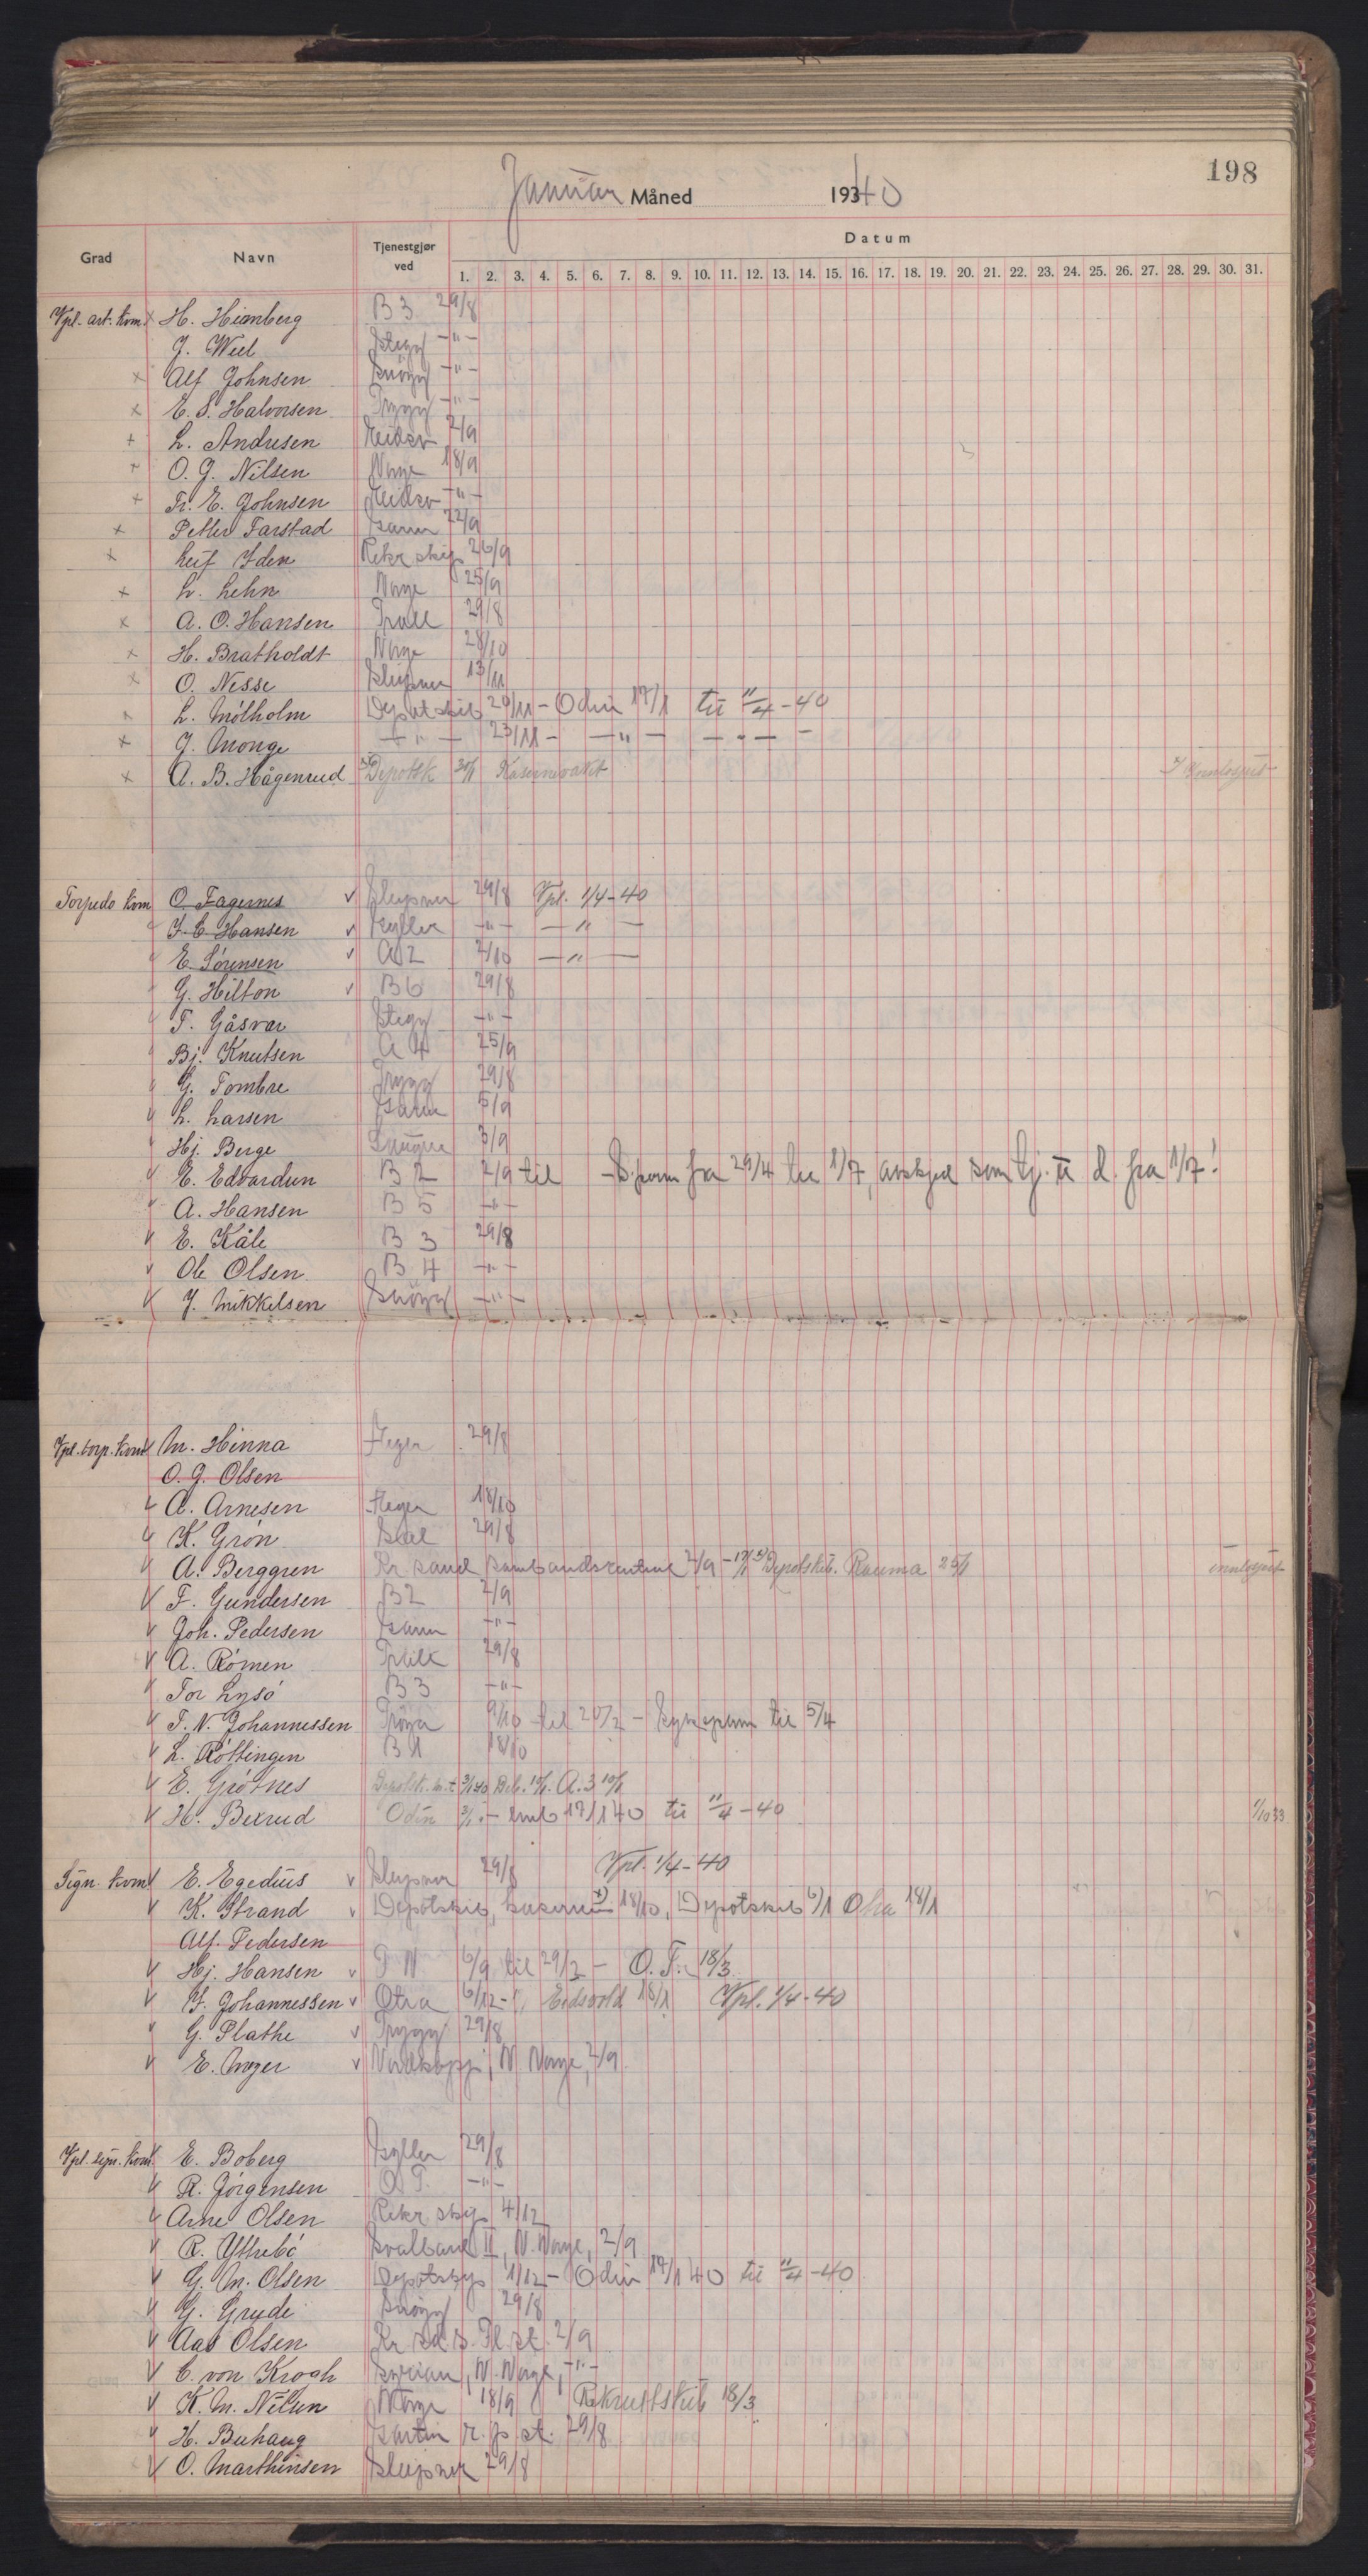 198
Januar Måned 193 40
Grad Navn Tjenestgjør ved Datum
1. 2. 3. 4. 5. 6. 7. 8. 9. 10. 11. 12. 13. 14. 15. 16. 17. 18. 19. 20. 21. 22. 23. 24. 25. 26. 27. 28. 29. 30. 31.
Vpl. art. kvm. x H. Heimberg B 3 29/8
J. Weel Stegg -"-
x Alf Johnsen Snögg -"-
x E. S. Halvorsen Trygg -"-
+ L. Andresen Eidsv 2/9
x O. J. Nilsen Norge 18/9
x Fr. E. Johnsen Eidsv -"-
x Petter Farstad 22/9
x Leif Iden Rekr skip 26/9
x L. Lehn Norge 25/9
x A. O. Hansen Troll 29/8
x H. Bratholdt Norge 28/10
x O. Nesse Sleipner 13/11
x L. Mölholm Depotskib 29/11 - Odin 17/1 til 11/4 - 40
x J. Monge -"- 23/11 - -"- -"-
x A. B. Hågenrud Depotsk 30/1 Kasernevakt
Torpedo kvm O. Fagernes v Sleipner 29/8 Vpl. 1/4-40
J. C. Hansen v Kyller -"- -"-
E. Sörensen v A 2 2/10 -"-
G. Hilton v B 6 29/8
T. Gåsvær Stegg -"-
Bj. Knutsen A 4 25/9
G. Tombre Trygg 29/8
L. Larsen 5/9
Hj. Berge 3/9
E. Edvardsen B 2 2/9 til perm fra 29/4 til 1/7, avskjed som tj. II d. fra 1/7!
A. Hansen B 5 -"-
E. Kåle B 3 29/8
Ole Olsen B 4 -"-
J. Mikkelsen Snögg -"-
Vpl. torp. kvm M. Hinna Æger 29/8
O. J. Olsen
A. Arnesen Æger 18/10
K. Grön Sæl 29/8
A. Berggren Kr sand Sambandscentral 2/9 - Depotskib. Rauma 25/1
F. Gundersen B 2 2/9
Joh. Pedersen -"-
A. Römen Troll 29/8
Tor Lysö B 3 -"-
T. N. Johannessen Fröya 9/10 til 20/2 - Sykeperm til 5/4
L. Röttingen B 1 18/10
E. Grötnes A. 3 10/1
H. Bexrud Odin 17/1 40 til 11/4-40
Sign. kvm E. Egedius v Sleipner 29/8 Vpl. 1/4-40
K. Strand v Depotskib, 18/10, Depotskib 6/1 Otra 18/1
Alf. Pedersen
Hj. Hansen v 6/9 til 29/2 - O. T. 18/3
J. Johannessen v Otra 6/12 - Eidsvold 18/1 Vpl. 1/4-40
G. Plathe v Trygg 29/8
E. Meyer v Nordkapp, N. Norge, 2/9
Vpl. sign. kvm E. Boberg Gyller 29/8
R. Jörgensen O. T. -"-
Arne Olsen Rekr skip 4/12
R. Ytthebö Svalbard II, N. Norge, 2/9
G. M. Olsen Depotskip 1/12 - Odin 17/1 40 til 11/4-40
G. Grude Snögg 29/8
Aas Olsen Kr sd s. Fl. st. 2/9
C. von Krogh N. Norge, -"-
K. M. Nilsen Norge 18/9 Rekruttskib 18/3
H. Buhaug r. p st. 29/8
O. Marthinsen Sleipner 29/8